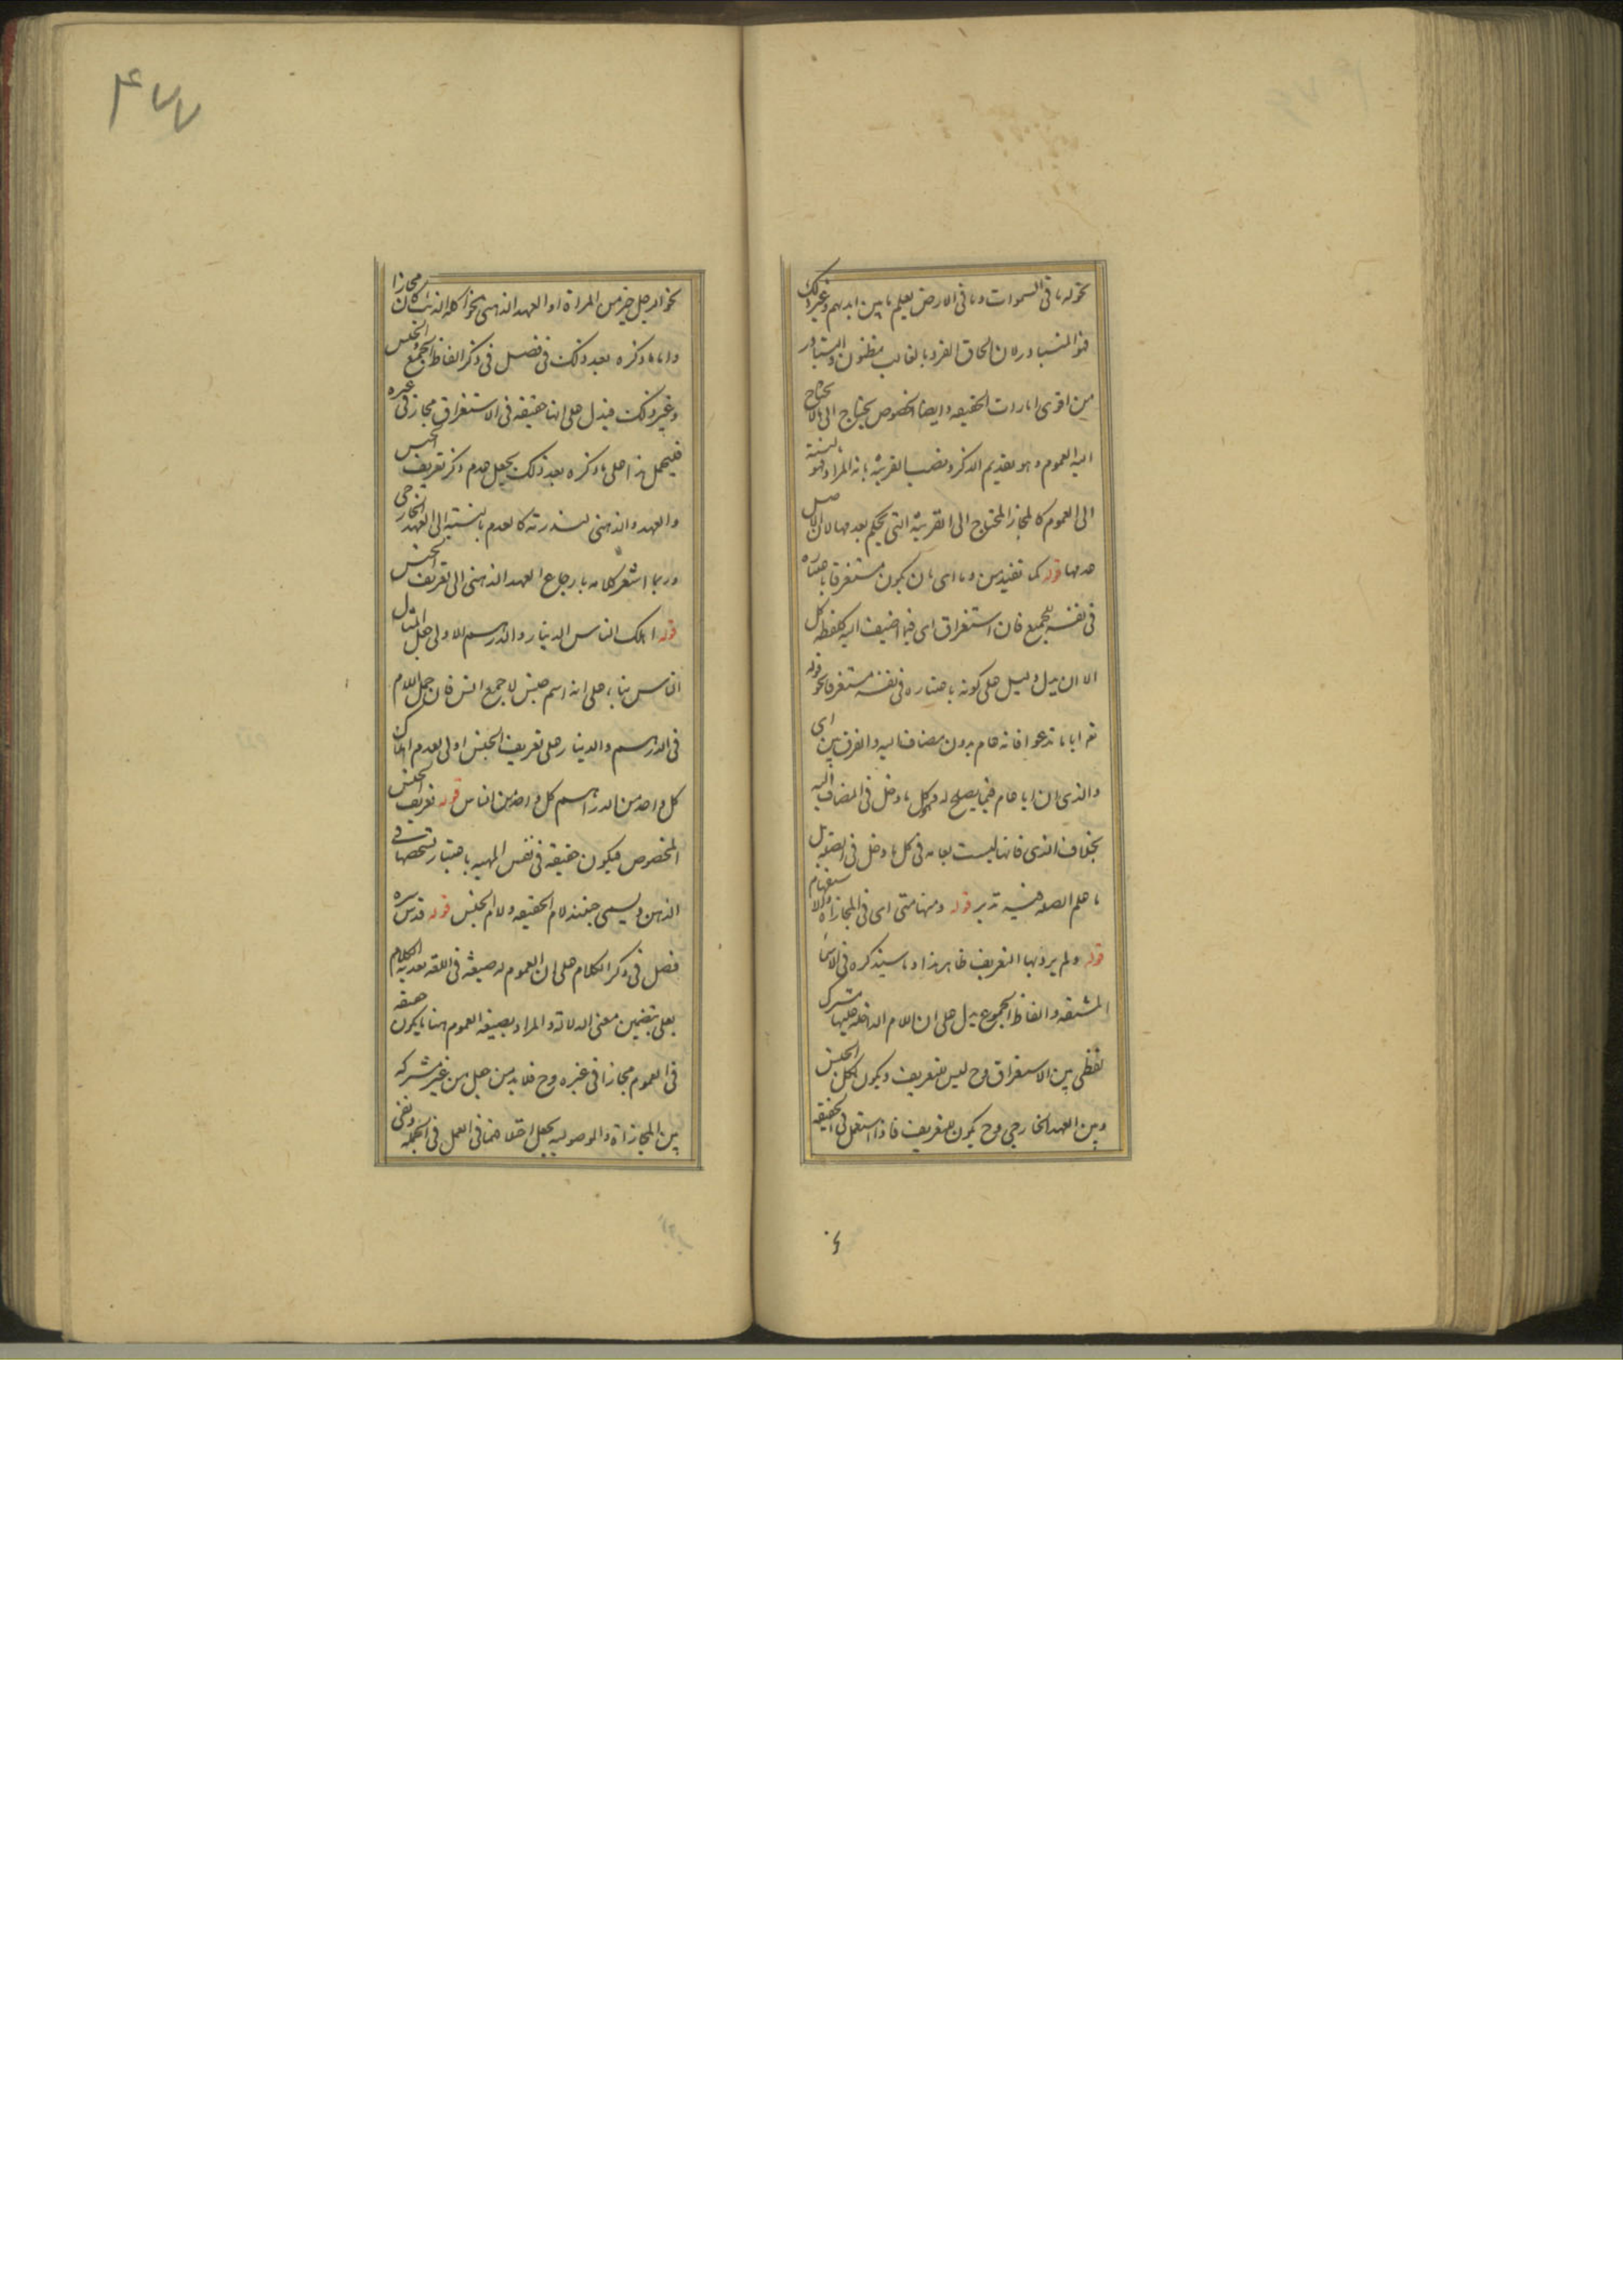 نحو له ما فى السموات وما فى الارض يعلم ما بين ايديهم وغير ذلك
فهو المتبادر لان الحاق الفرد بالغالب مظنون والتبادر
من اقوى امارات الحقيقه وايضا الخصوص يحتاج الى ما لا يحتاج
اليه العموم وهو تقديم الذكر ونصب القرينة بانه المراد فهو بالنسبة
الى العموم كالمجاز المحتاج الى القرينة التى يحكم بعدمها لان الاصل
عدمها قوله كما تفيد من وما اى بان يكون مستغرقا باعتباره
فى نفسه للجميع فان استغراق اى فيما اضيف اليه كلفظة كل
الا ان يدل دليل على كونه باعتباره فى نفسه مستغرقا نحو قوله
تعه ايا ما تدعوا فانه عام بدون مضاف اليه والفرق بين اى
والذى ان ايا عام فيما يصلح له فى كل ما دخل فى المضاف اليه
بخلاف الذى فانها ليست بعامه فى كل ما دخل فى الصلة بل
ما علم الصله فيه تدبر قوله ومنها متى اى فى المجازاة والاستفهام
قوله ولم يرد بها التعريف ظاهر هذا وما سيذكره فى الاسماء
المشتقه والفاظ الجموع يدل على ان اللام الداخلة عليها مشترك
لفظى بين الاستغراق وح ليس للتعريف ويكون لكل الجنس
وبين العهد الخارجى وح يكون للتعريف فاذا استعمل فى الحقيقه
نحو الرجل خير من المراة او العهد الذهنى نحو اكله الذئب كان مجازا
واما ما ذكره بعد ذلك فى فصل فى ذكر الفاظ الجمع والجنس
وغير ذلك فيدل على انها حقيقة فى الاستغراق مجاز فى غيره
فيحمل هذا على ما ذكره بعد ذلك بجعل عدم ذكر تعريف الجنس
والعهد والذهنى لندرته كالعدم بالنسبة الى العهد الخارجى
وربما اشعر كلامه بارجاع العهد الذهنى الى تعريف الجنس
قوله اهلك الناس الدينار والدرهم الاولى جعل المثال
الناس بناء على انه اسم جنس لا جمع انس فان حمل اللام
فى الدرهم والدينار على تعريف الجنس اولى لعدم اهلاك
كل واحد من الدراهم كل واحد من الناس قوله تعريف الجنس
المخصوص فيكون حقيقة فى نفس المهيه باعتبار تشخصها فى
الذهن ويسمى حينئذ لام الحقيقه ولام الجنس قوله قدس سره
فصل فى ذكر الكلام على ان العموم له صيغة فى اللغه تعديه الكلام
بعلى بتضمين معنى الدلالة والمراد بصيغة العموم هنا ما يكون حقيقه
فى العموم مجازا فى غيره وح فلا بد من جعل من غير مشتركه
بين المجازاة والموصوليه بجعل اختلافهما فى العمل فى الجمله ونفى
۴۷۷